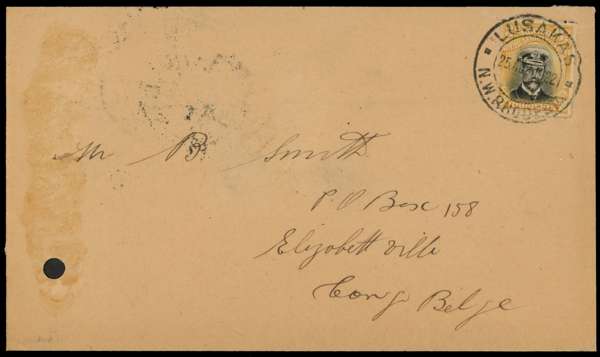 LUSAKAS
N.W. RHODESIA
Mr B. Smith
P O Box 158
Elizabethville
Congo Belge